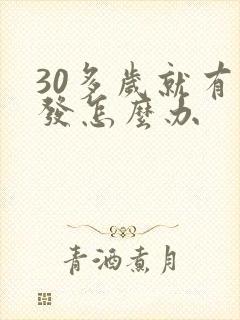 30多歲就有
發怎麼办
青酒煮月